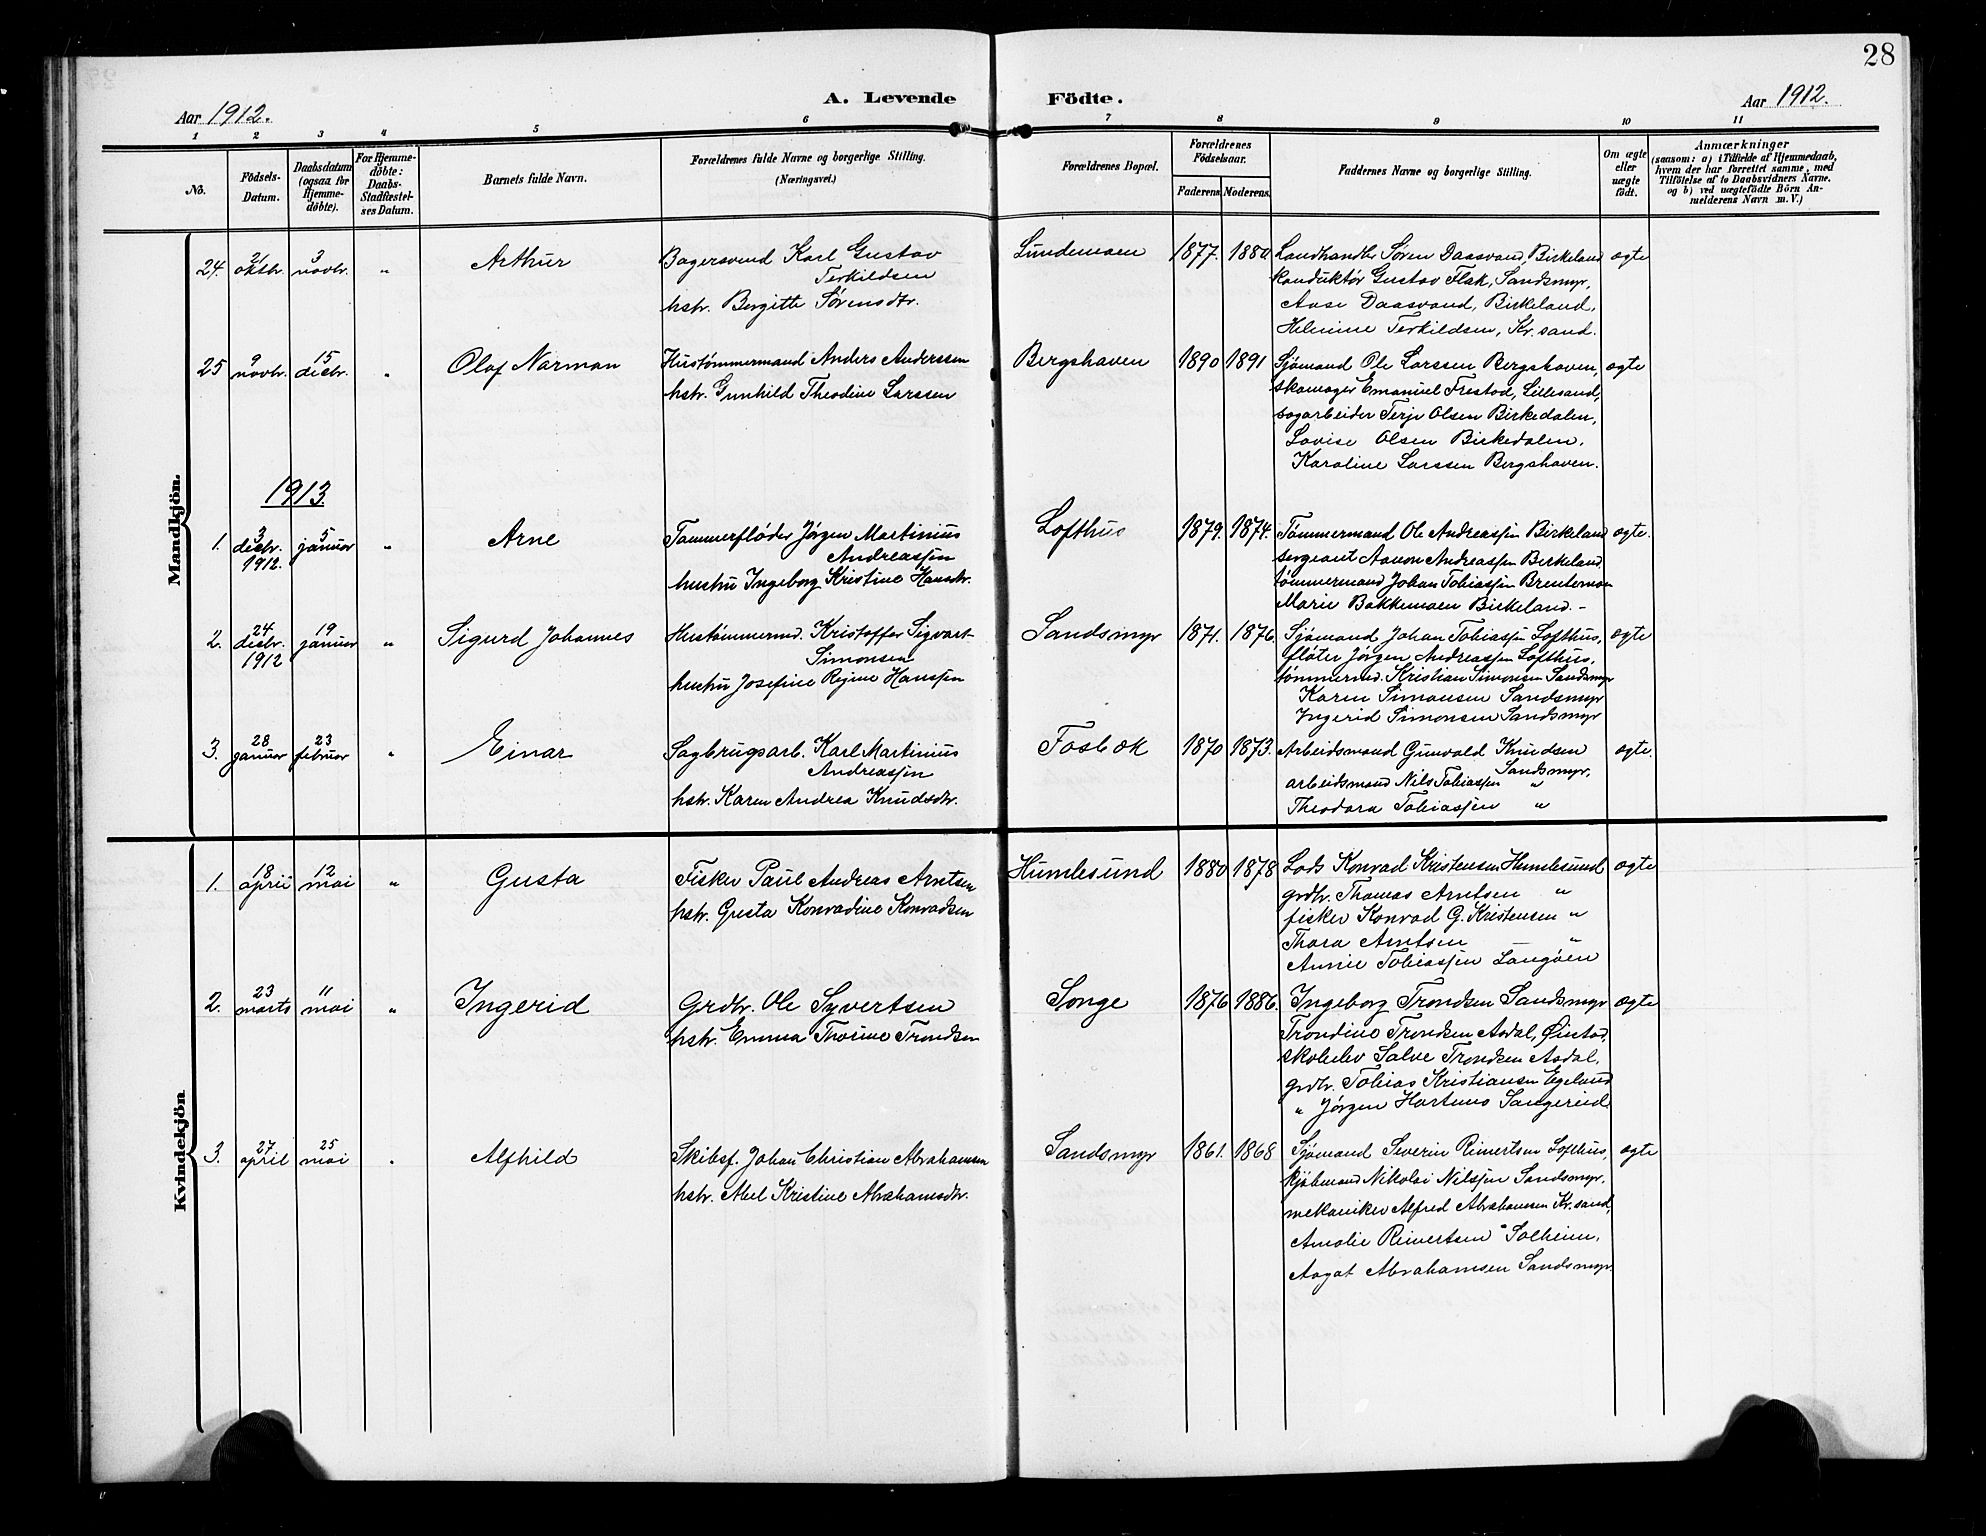 28
Aar 1912.
A. Levende Födte.
Aar 1912.
1 2 3 4 5 6 7 8 9 10 11
No.
Födsels-Datum.
Daabsdatum (ogsaa for Hjemme-döbte).
For Hjemme-döbte: Daabs-Stadfæstel-ses Datum.
Barnets fulde Navn.
Forældrenes fulde Navne og borgerlige Stilling. (Næringsvei.)
Forældrenes Bopæl.
Forældrenes Födselsaar.
Faderens Moderens.
Faddernes Navne og borgerlige Stilling.
Om ægte eller uægte födt.
Anmærkninger
(saasom: a) i Tilfælde af Hjemmedaab,
hvem der har forrettet samme, med
Tilföielse af to Daabsvidners Navne.
og b) ved uægtefödte Börn An-
melderens Navn m. V.)
Mandkjön.
24. 21 oktbr. 3 novbr. " Arthur
Bagersvend Karl Gustav
Terkildsen
hstr. Bergitte Sørensdtr.
Lundemoen 1877. 1880
Landhandler Søren Daasvand, Birkeland
konduktør Gustav Flak, Sandsmyr,
Aase Daasvand, Birkeland,
Helmine Terkildsen, Kr.sand.
ægte
25 9 novbr. 15 decbr. " Olaf Norman
Hustømmermand Anders Anderssen
hstr. Gunhild Theodine Larssen
Bergshaven 1890 1891
Sjømand Ole Larssen Bergshaven,
skomager Emanuel Frestad, Lillesand,
sagarbeider Terje Olsen Birkedalen,
Lovise Olsen Birkedalen,
Karoline Larssen Bergshaven.
ægte
1913
1. 3 decbr. 1912. 5 januar " Arne
Tømmerfløder Jørgen Martinius
Andreassen
hustru Ingeborg Kristine Hansdtr.
Lofthus 1879. 1874.
Tømmermand Ole Andreassen Birkeland
sergeant Aanon Andreassen Birkeland
tømmermand Johan Tobiassen Brentemoen
Marie Bakkemoen Birkeland. -
ægte.
2. 24 decbr. 1912 19 januar " Sigurd Johannes
Hustømmermd. Kristoffer Sigvart
Simonsen
hustru Josefine Regine Hanssen
Sandsmyr 1871. 1876.
Sjømand Johan Tobiassen Lofthus,
fløter Jørgen Andreassen Lofthus,
tømmermd. Kristian Simonsen Sandsmyr
Karen Simonsen Sandsmyr
Ingerid Simonsen Sandsmyr
ægte
3. 28 januar 23 februar " Einar
Sagbrugsarb. Karl Martinius
Andreassen
hstr. Karen Andrea Knudsdtr.
Fosbæk 1870 1873.
Arbeidsmand Gunvald Knudsen
Sandsmyr,
arbeidsmand Nils Tobiassen "
Theodora Tobiassen "
ægte.
Kvindekjön
1. 18 april 12 mai " Gusta
Fisker Paul Andreas Arntsen
hstr. Gusta Konradine Konradsen
Humlesund 1880 1878
Lods Konrad Kristensen Humlesund
grdbr. Thomas Arntsen "
fisker Konrad G. Kristensen "
Thora Arntsen "
Annie Tobiassen Langøen
ægte
2. 23 marts 11 mai " Ingerid
Grdbr. Ole Syvertsen
hstr. Emma Thorine Trondsen
Songe 1876 1886.
Ingeborg Trondsen Sandsmyr
Trondine Trondsen Asdal, Øiestad,
skoleelev Salve Trondsen Asdal,
grdbr. Tobias Kristiansen Egeland
" Jørgen Hartens Sangereid
ægte
3. 27 april 25 mai " Alfhild
Skibsf. Johan Christian Abrahamsen
hstr. Abel Kristine Abrahamsdtr.
Sandsmyr 1861. 1868
Sjømand Severin Reinertsen Lofthus,
kjøbmand Nikolai Nilssen Sandsmyr.
mekaniker Alfred Abrahamsen Kr.sand,
Amalie Reinertsen "Solheim,
Aagat Abrahamsen Sandsmyr.
ægte